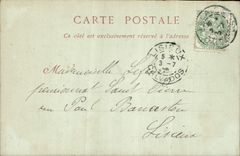 CARTE POSTALE
Ce côté est exclusivement réservé à l'adresse
LISIEUX
5
3 -7
CALVADOS
Mademoiselle
pensionnat Saint Pierre
rue Paul Banaston
Lisieux